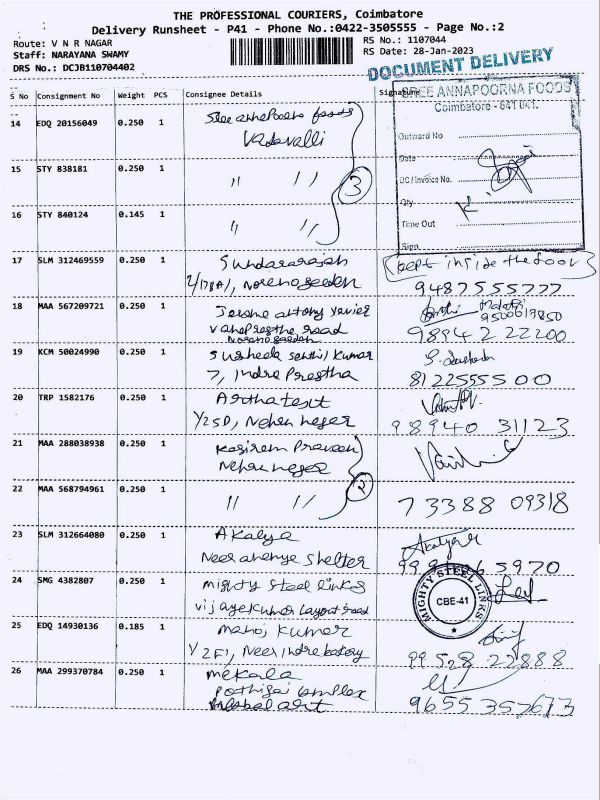 THE PROFESSIONAL COURIERS, Coimbatore
Delivery Runsheet - P41 - Phone No.:0422-3505555 - Page No.:2
Route: V N R NAGAR
RS No.: 1107044
Staff: NARAYANA SWAMY
RS Date: 28-Jan-2023
DRS No.: DCJB110704402
DOCUMENT DELIVERY
S No Consignment No Weight PCS Consignee Details Signature
SREE ANNAPOORNA FOODS
Coimbatore - 641 041.
Outward No
Date
DC/Invoice No.
Qty
Time Out
Sign
14 EDQ 20156049 0.250 1 Sree annapoorna foods
Vadavalli
15 STY 838181 0.250 1 " "
3
16 STY 840124 0.145 1 " "
17 SLM 312469559 0.250 1 Sundararajan
(kept inside the door)
9487555777
18 MAA 567209721 0.250 1 Jerome antony xavier
9500019850
road
98942 22200
19 KCM 50024990 0.250 1 Susheela senthil kumar
7, Indra Prestha
81225555 00
20 TRP 1582176 0.250 1
Y25D, Nehru neger
98940 31123
21 MAA 288038938 0.250 1 Praveen
Nehru neger
22 MAA 568794961 0.250 1 " " 2
73388 09318
23 SLM 312664080 0.250 1 Akalya
Akalya
shelter
5970
24 SMG 4382807 0.250 1 mighty steel links
MIGHTY STEEL LINKS
CBE-41
vijayekumar Layout road
25 EDQ 14930136 0.185 1 manoj kumar
Y2F1,
99528 22888
26 MAA 299370784 0.250 1 mekala
Pothigai complex